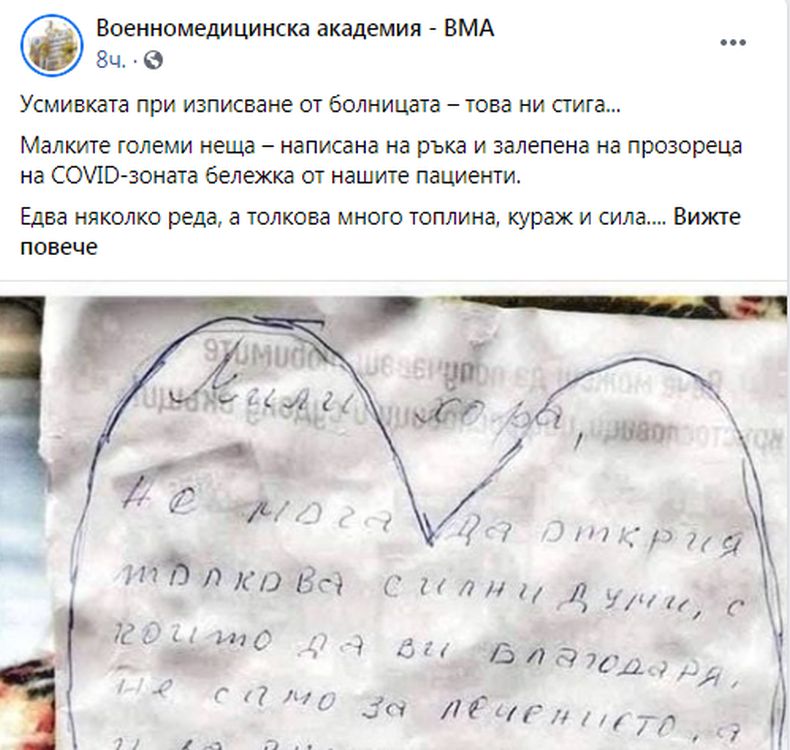 Военномедицинска академия - ВМА
8ч.
Усмивката при изписване от болницата – това ни стига...
Малките големи неща – написана на ръка и залепена на прозореца
на COVID-зоната бележка от нашите пациенти.
Едва няколко реда, а толкова много топлина, кураж и сила.... Вижте
повече
Мили хора,
не мога да открия
толкова силни думи, с
които да ви благодаря,
не само за лечението, а
и за